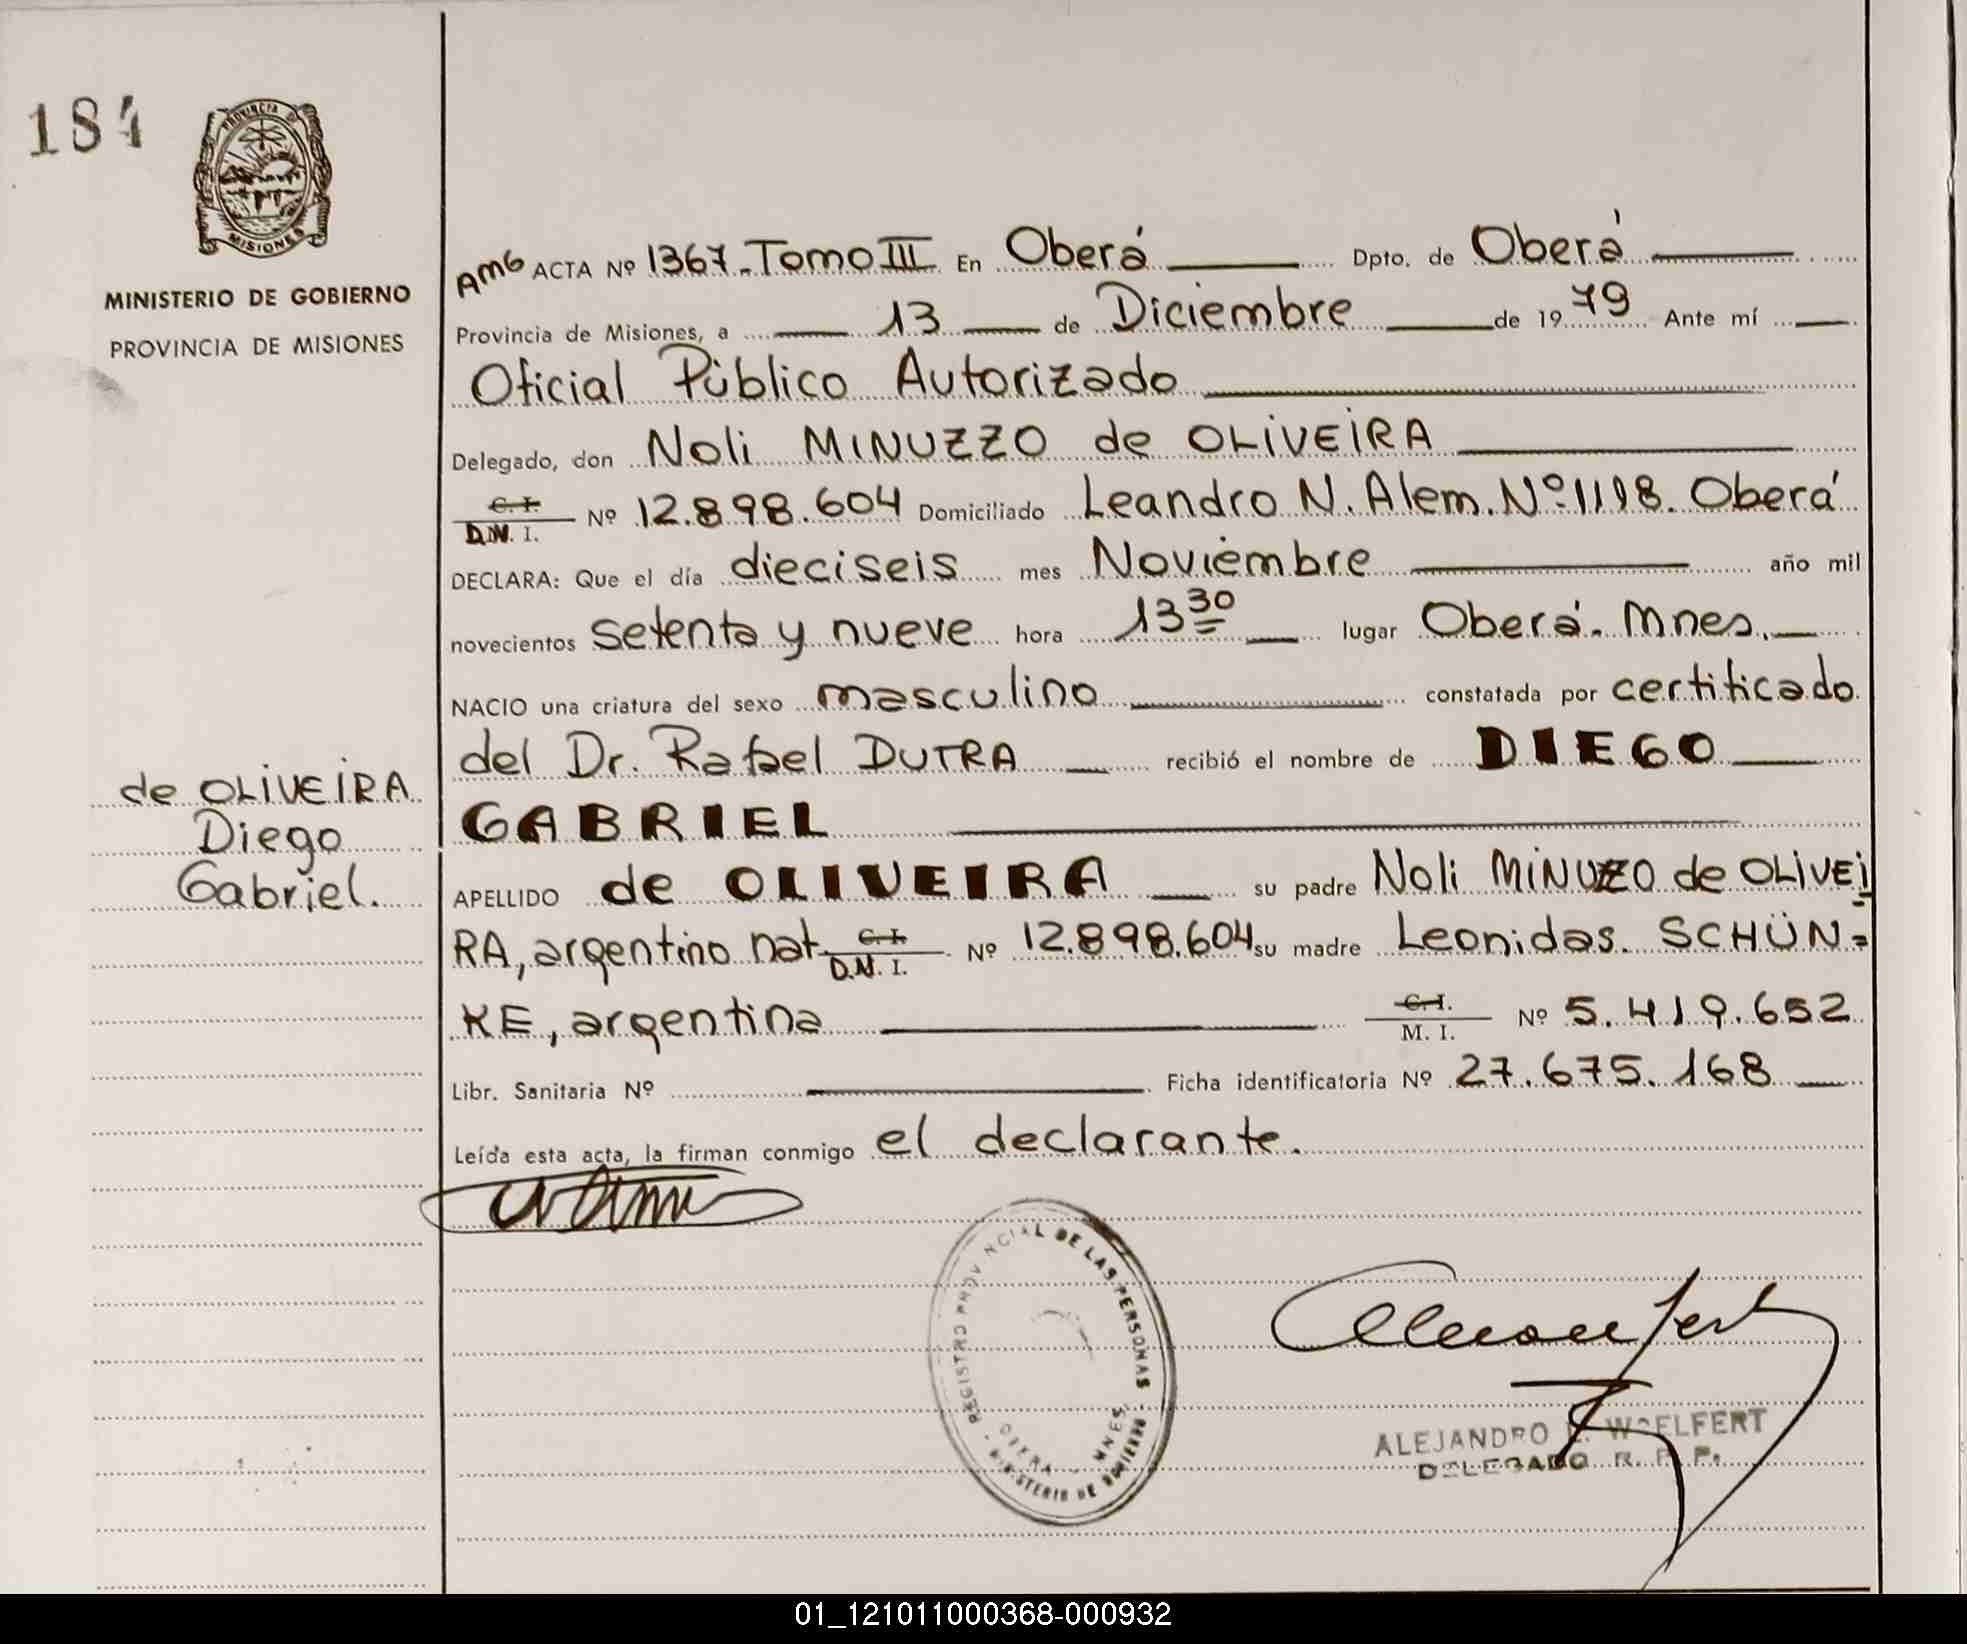 184
PROVINCIA D
MISIONES
MINISTERIO DE GOBIERNO
PROVINCIA DE MISIONES
AMG ACTA Nº 1367. Tomo III En Oberá Dpto. de Oberá
Provincia de Misiones, a 13 de Diciembre de 1979 Ante mí
Oficial Público Autorizado
Delegado, don Noli MINUZZO de OLIVEIRA
C. I.
D.N. I. Nº 12.898.604 Domiciliado Leandro N. Alem. Nº 1198. Oberá
DECLARA: Que el día dieciseis mes Noviembre año mil
novecientos setenta y nueve hora 13 30 lugar Oberá. Mnes.
NACIO una criatura del sexo masculino constatada por certificado
del Dr. Rafael DUTRA recibió el nombre de DIEGO
GABRIEL
de OLIVEIRA
Diego
Gabriel.
APELLIDO de OLIVEIRA su padre Noli MINUZZO de OLIVEI
RA, argentino nat. C. I. D.N. I. Nº 12.898.604 su madre Leonidas. SCHÜN=
KE, argentina C. I. M. I. Nº 5.419.652
Libr. Sanitaria Nº Ficha identificatoria Nº 27.675.168
Leída esta acta, la firman conmigo el declarante.
REGISTRO PROVINCIAL DE LAS PERSONAS
OBERA - MNES
MINISTERIO DE GOBIERNO
ALEJANDRO WOELFERT
DELEGADO R. P. P.
01_121011000368-000932